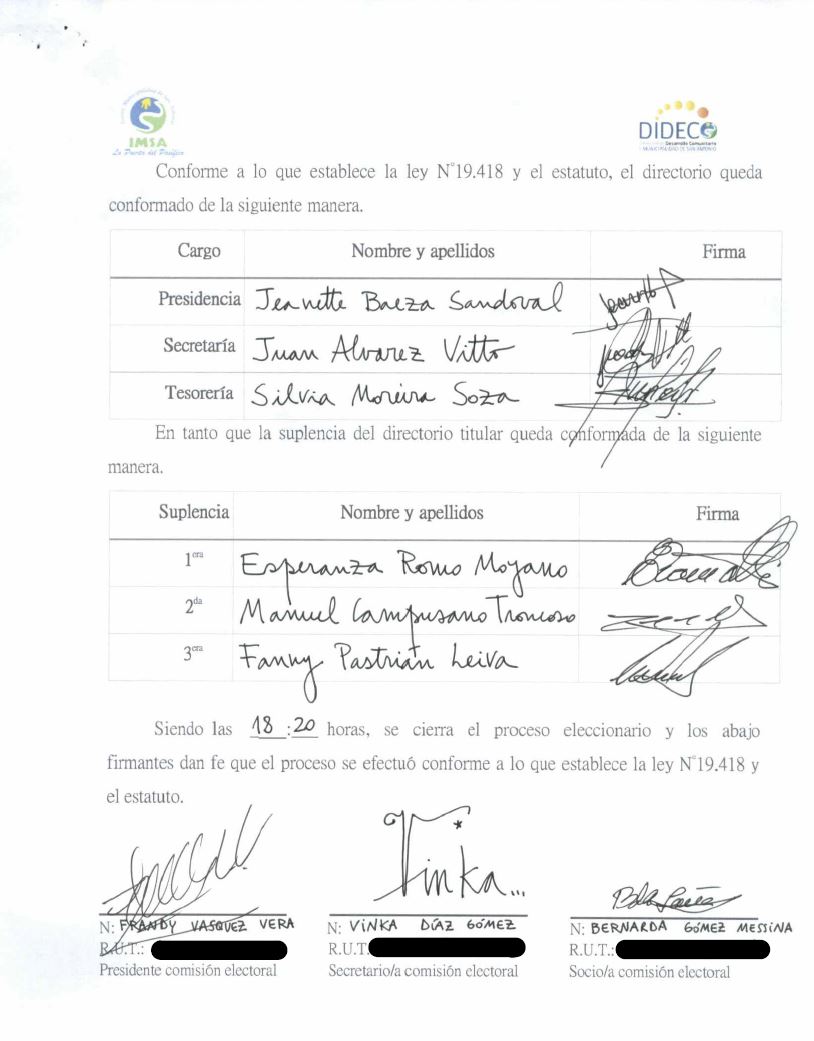 IMSA
La Puerta del Pacífico
DIDECO
Desarrollo Comunitario
I. MUNICIPALIDAD DE SAN ANTONIO
Conforme a lo que establece la ley N°19.418 y el estatuto, el directorio queda
conformado de la siguiente manera.
Cargo Nombre y apellidos Firma
Presidencia Jeanette Baeza Sandoval
Secretaría Juan Alvarez Vitto
Tesorería Silvia Moreira Soza
En tanto que la suplencia del directorio titular queda conformada de la siguiente
manera.
Suplencia Nombre y apellidos Firma
1era Esperanza Romo Moyano
2da Manuel Campusano Troncoso
3era Fanny Pastrián Leiva
Siendo las 18 : 20 horas, se cierra el proceso eleccionario y los abajo
firmantes dan fe que el proceso se efectuó conforme a lo que establece la ley N°19.418 y
el estatuto.
Vinka...
N: FRANDY VASQUEZ VERA N: VINKA DÍAZ GÓMEZ N: BERNARDA GÓMEZ MESSINA
R.U.T.: R.U.T. R.U.T.:
Presidente comisión electoral Secretario/a comisión electoral Socio/a comisión electoral